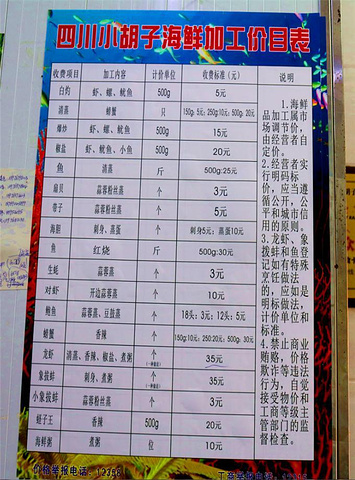 四川小胡子海鲜加工价目表
收费项目 加工内容 计价单位 收费标准（元） 说明
白灼 虾、螺、鱿鱼 500g 5元
清蒸 螃蟹 只 150g:5元；250g:10元；500g:20元
爆炒 虾、螺、鱿鱼 500g 15元
椒盐 虾、鱿鱼、小鱼 500g 20元
鱼 清蒸 斤 500g:25元
扇贝 蒜蓉粉丝蒸 个 3元
带子 蒜蓉粉丝蒸 个 5元
海胆 刺身、蒸蛋 个 刺身5元；蒸蛋10元
鱼 红烧 斤 500g:30元
生蚝 蒜蓉蒸 个 3元
对虾 开边蒜蓉蒸 个 10元
鲍鱼 蒜蓉蒸、豆鼓蒸 个 18头：3元；12头：5元
螃蟹 香辣 个 150g:10元；250:20元；500g:30元
龙虾 清蒸、香辣、椒盐、煮粥 个 35元
象拔蚌 刺身、煮粥 个 35元
小象拔蚌 蒜蓉粉丝蒸 个 3元
蛏子王 香辣 500g 20元
海鲜粥 煮粥 位 10元
1.海鲜
品加工属市
场调节价，
由经营者自
定价。
2.经营者实
行明码标
价，应当遵
循公开，公
平和城市信
用的原则。
3.龙虾、象
拨蚌和鱼登
记如有特殊
烹饪做法
的，应如是
明标做法，
计价单位和
标准。
4.禁止商业
贿赂，价格
欺诈等违法
行为，自觉
接受物价和
工商等级主
管部门的监
督检查。
价格举报电话：12358